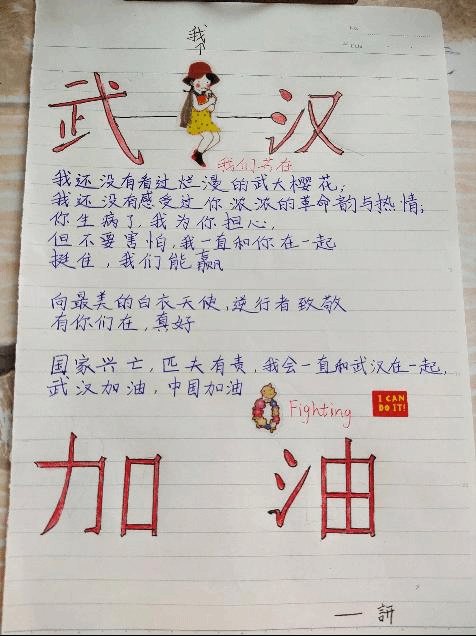 我
武 汉
我们共在
我还没有看过烂漫的武大樱花；
我还没有感受过你浓浓的革命韵与热情；
你生病了，我为你担心，
但不要害怕，我一直和你在一起
挺住，我们能赢
向最美的白衣天使，逆行者致敬
有你们在，真好
国家兴亡，匹夫有责，我会一直和武汉在一起，
武汉加油，中国加油
Fighting
I CAN
DO IT!
加 油
— 訮